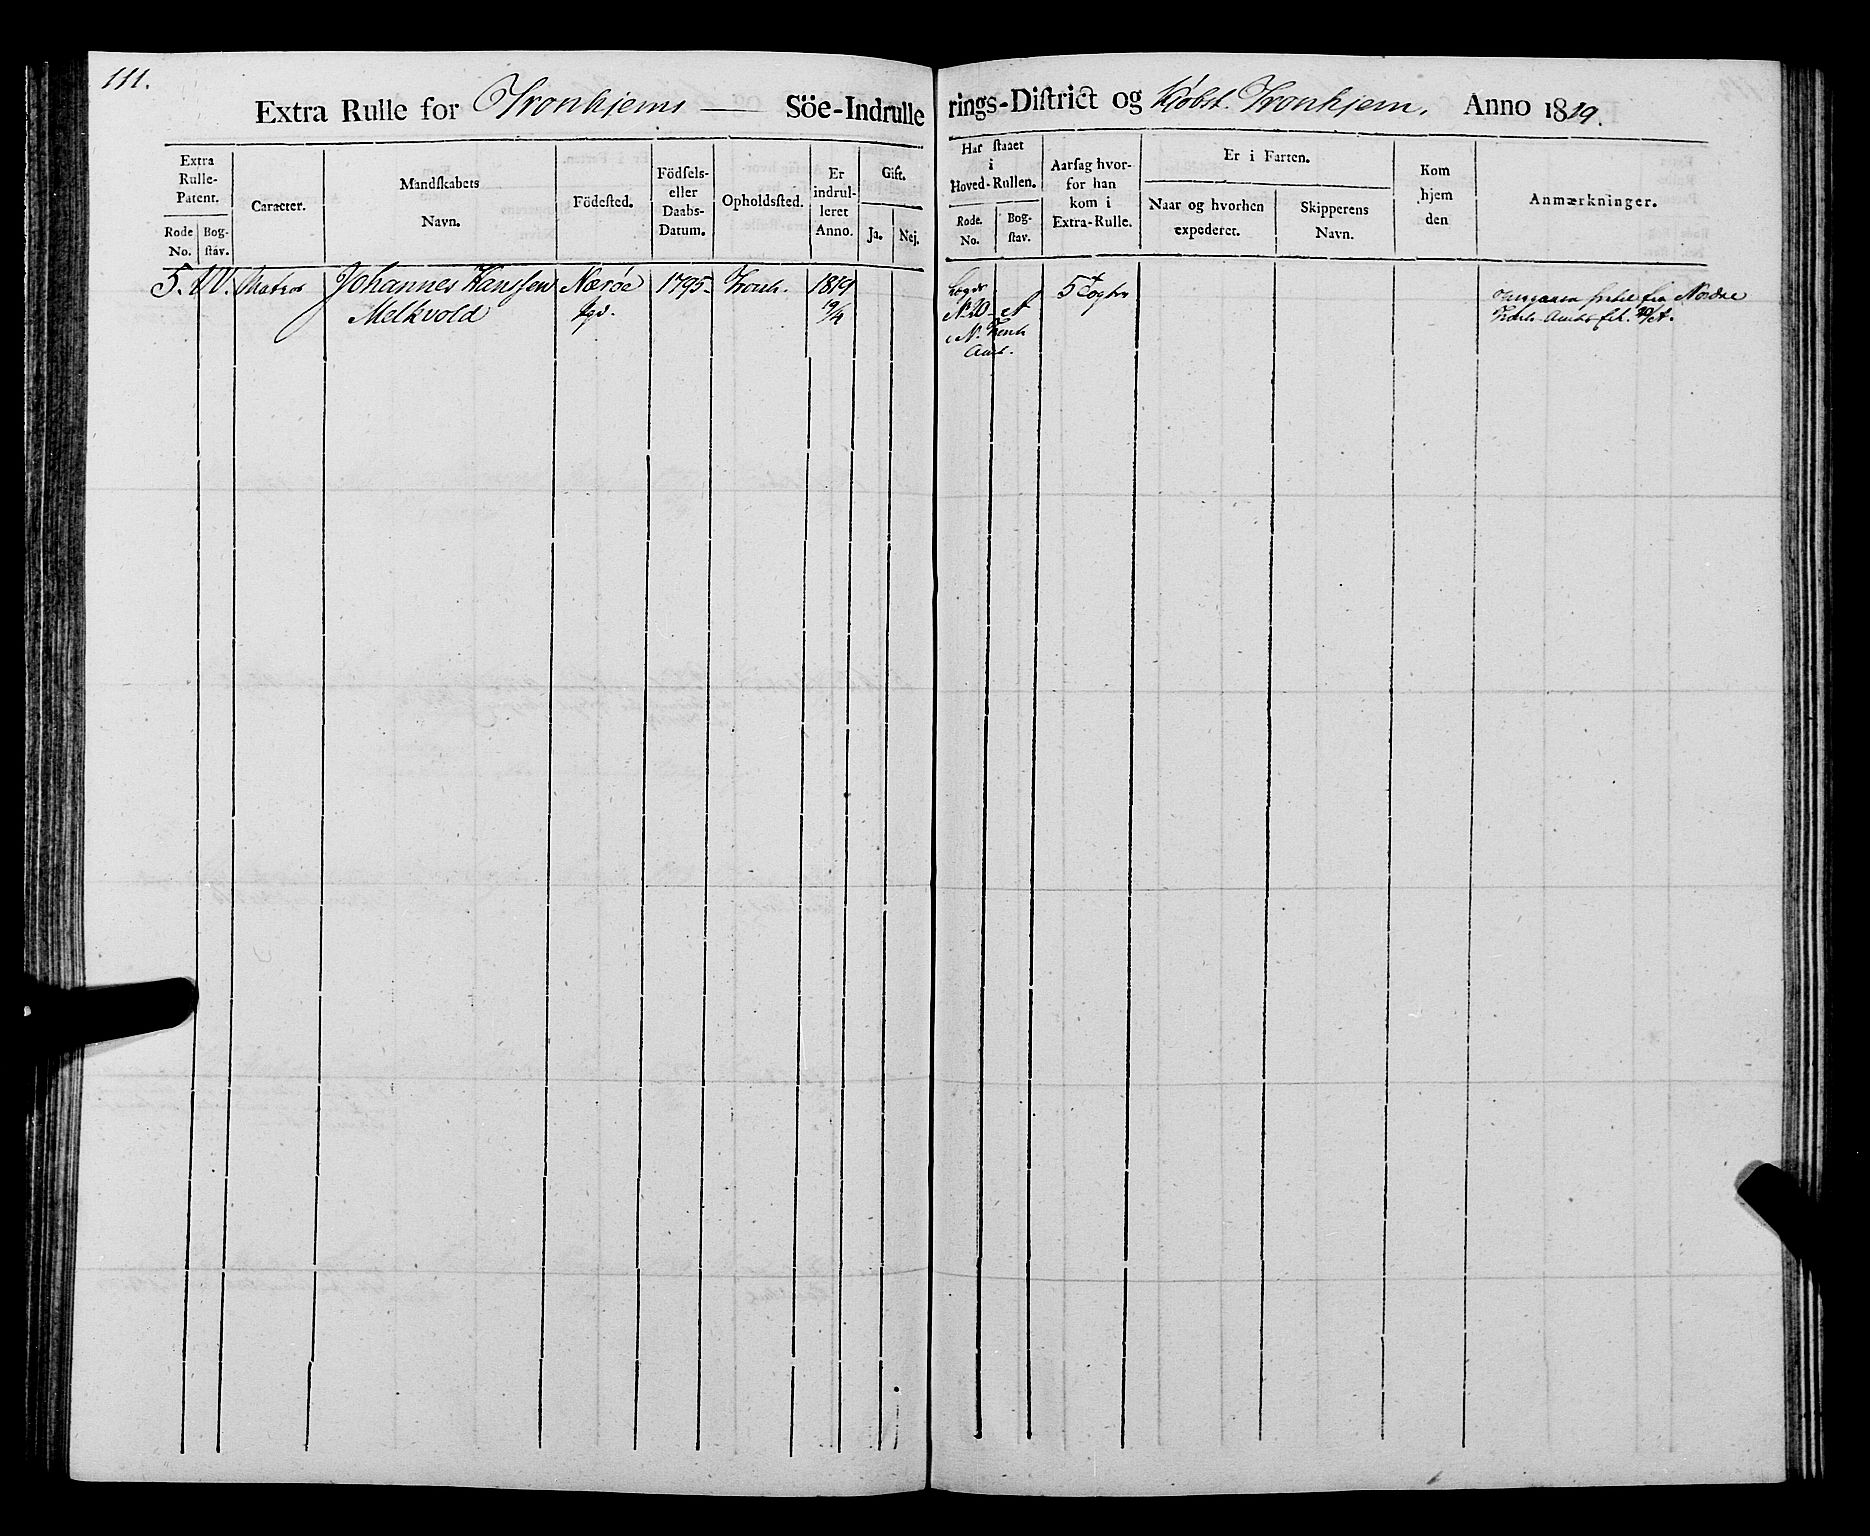 111.
Extra Rulle for Tronhjems — Söe-Indrulle rings-Diſtrict og Kiøbst. Tronhjem. Anno 1819.
Extra Rulle-Patent.
Rode No.
Bog-ſtav.
Caracter.
Mandſkabets Navn.
Födeſted.
Födſels- eller Daabs-Datum.
Opholdsſted.
Er indrul-leret Anno.
Gift.
Ja.
Nej.
Har ſtaaet i Hoved-Rullen.
Rode. No.
Bog-ſtav.
Aarſag hvor-for han kom i Extra-Rulle.
Er i Farten.
Naar og hvorhen expederet.
Skipperens Navn.
Kom hjem den
Anmærkninger.
5. W. Matros Johannes Hanssen Nærøe 1795. Tronh. 1819
Melkvold Pgd. 19/4
5 Togter
N. 20
i N. Tronh.
Amt.
fra Nordre
Amts